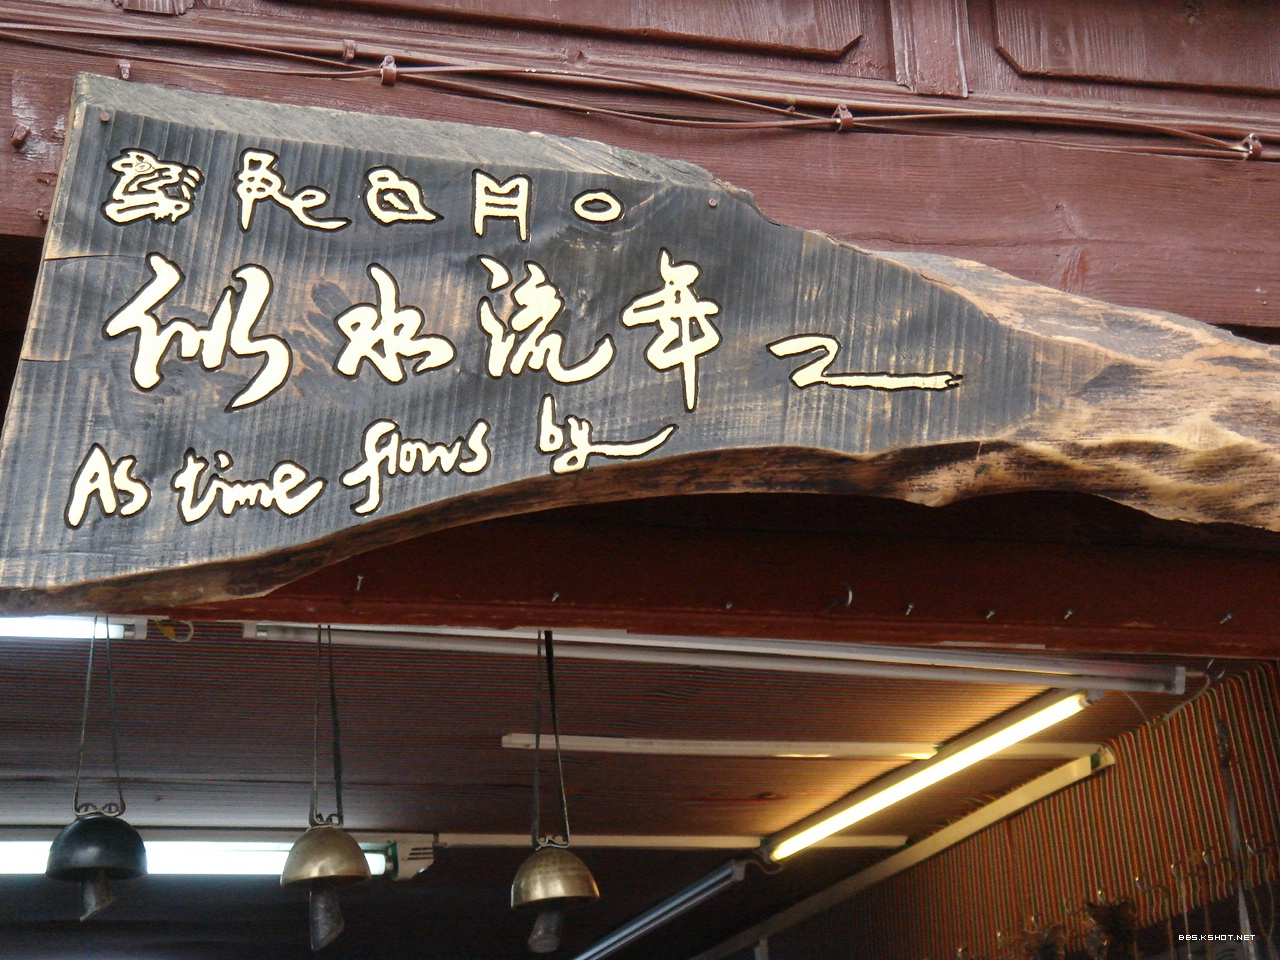 似水流年
As time flows by
BBS.KSHOT.NET